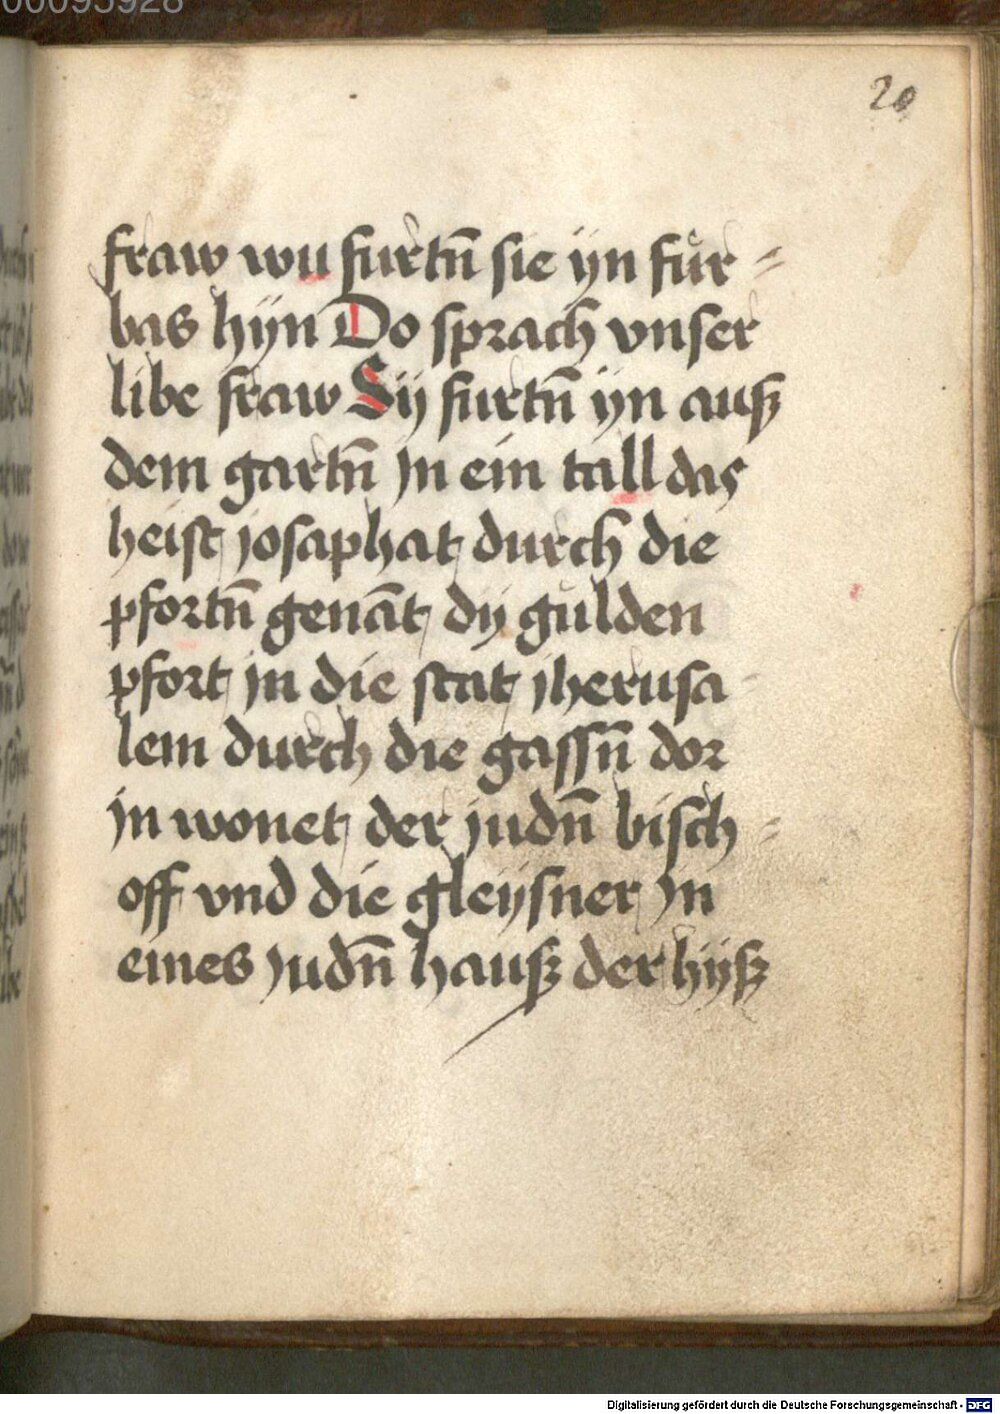 00095928
20
fraw wu furtn̄ sie ÿn fůr⸗
bas hÿn Do sprach vnser
libe fraw Sÿ furtn̄ ÿn auß
dem gartn̄ jn ein tall das
heist josaphat durch die
pfortn̄ genāt dÿ gulden
pfort jn die stat jherusa
lem durch die gassn̄ dor
jn wonet der judn̄ bisch⸗
off vnd die gleÿsner jn
eines judn̄ hauß der hÿß
Digitalisierung gefördert durch die Deutsche Forschungsgemeinschaft - DFG